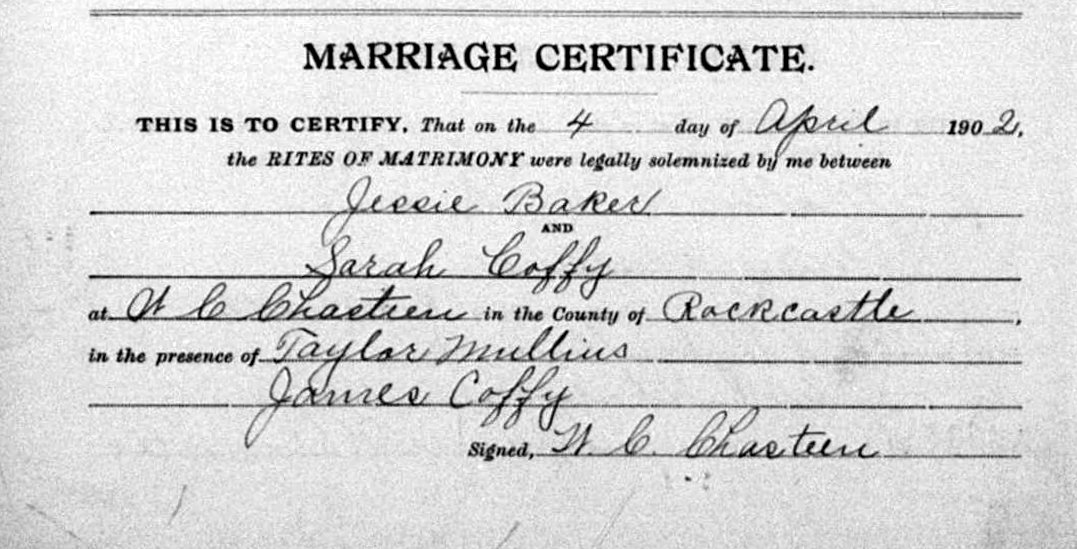 MARRIAGE CERTIFICATE.
THIS IS TO CERTIFY, That on the 4 day of April 1902,
the RITES OF MATRIMONY were legally solemnized by me between
Jessie Baker
AND
Sarah Coffy
at W C Chasteen in the County of Rockcastle,
in the presence of Taylor Mullins
James Coffy
Signed, W. C. Chasteen